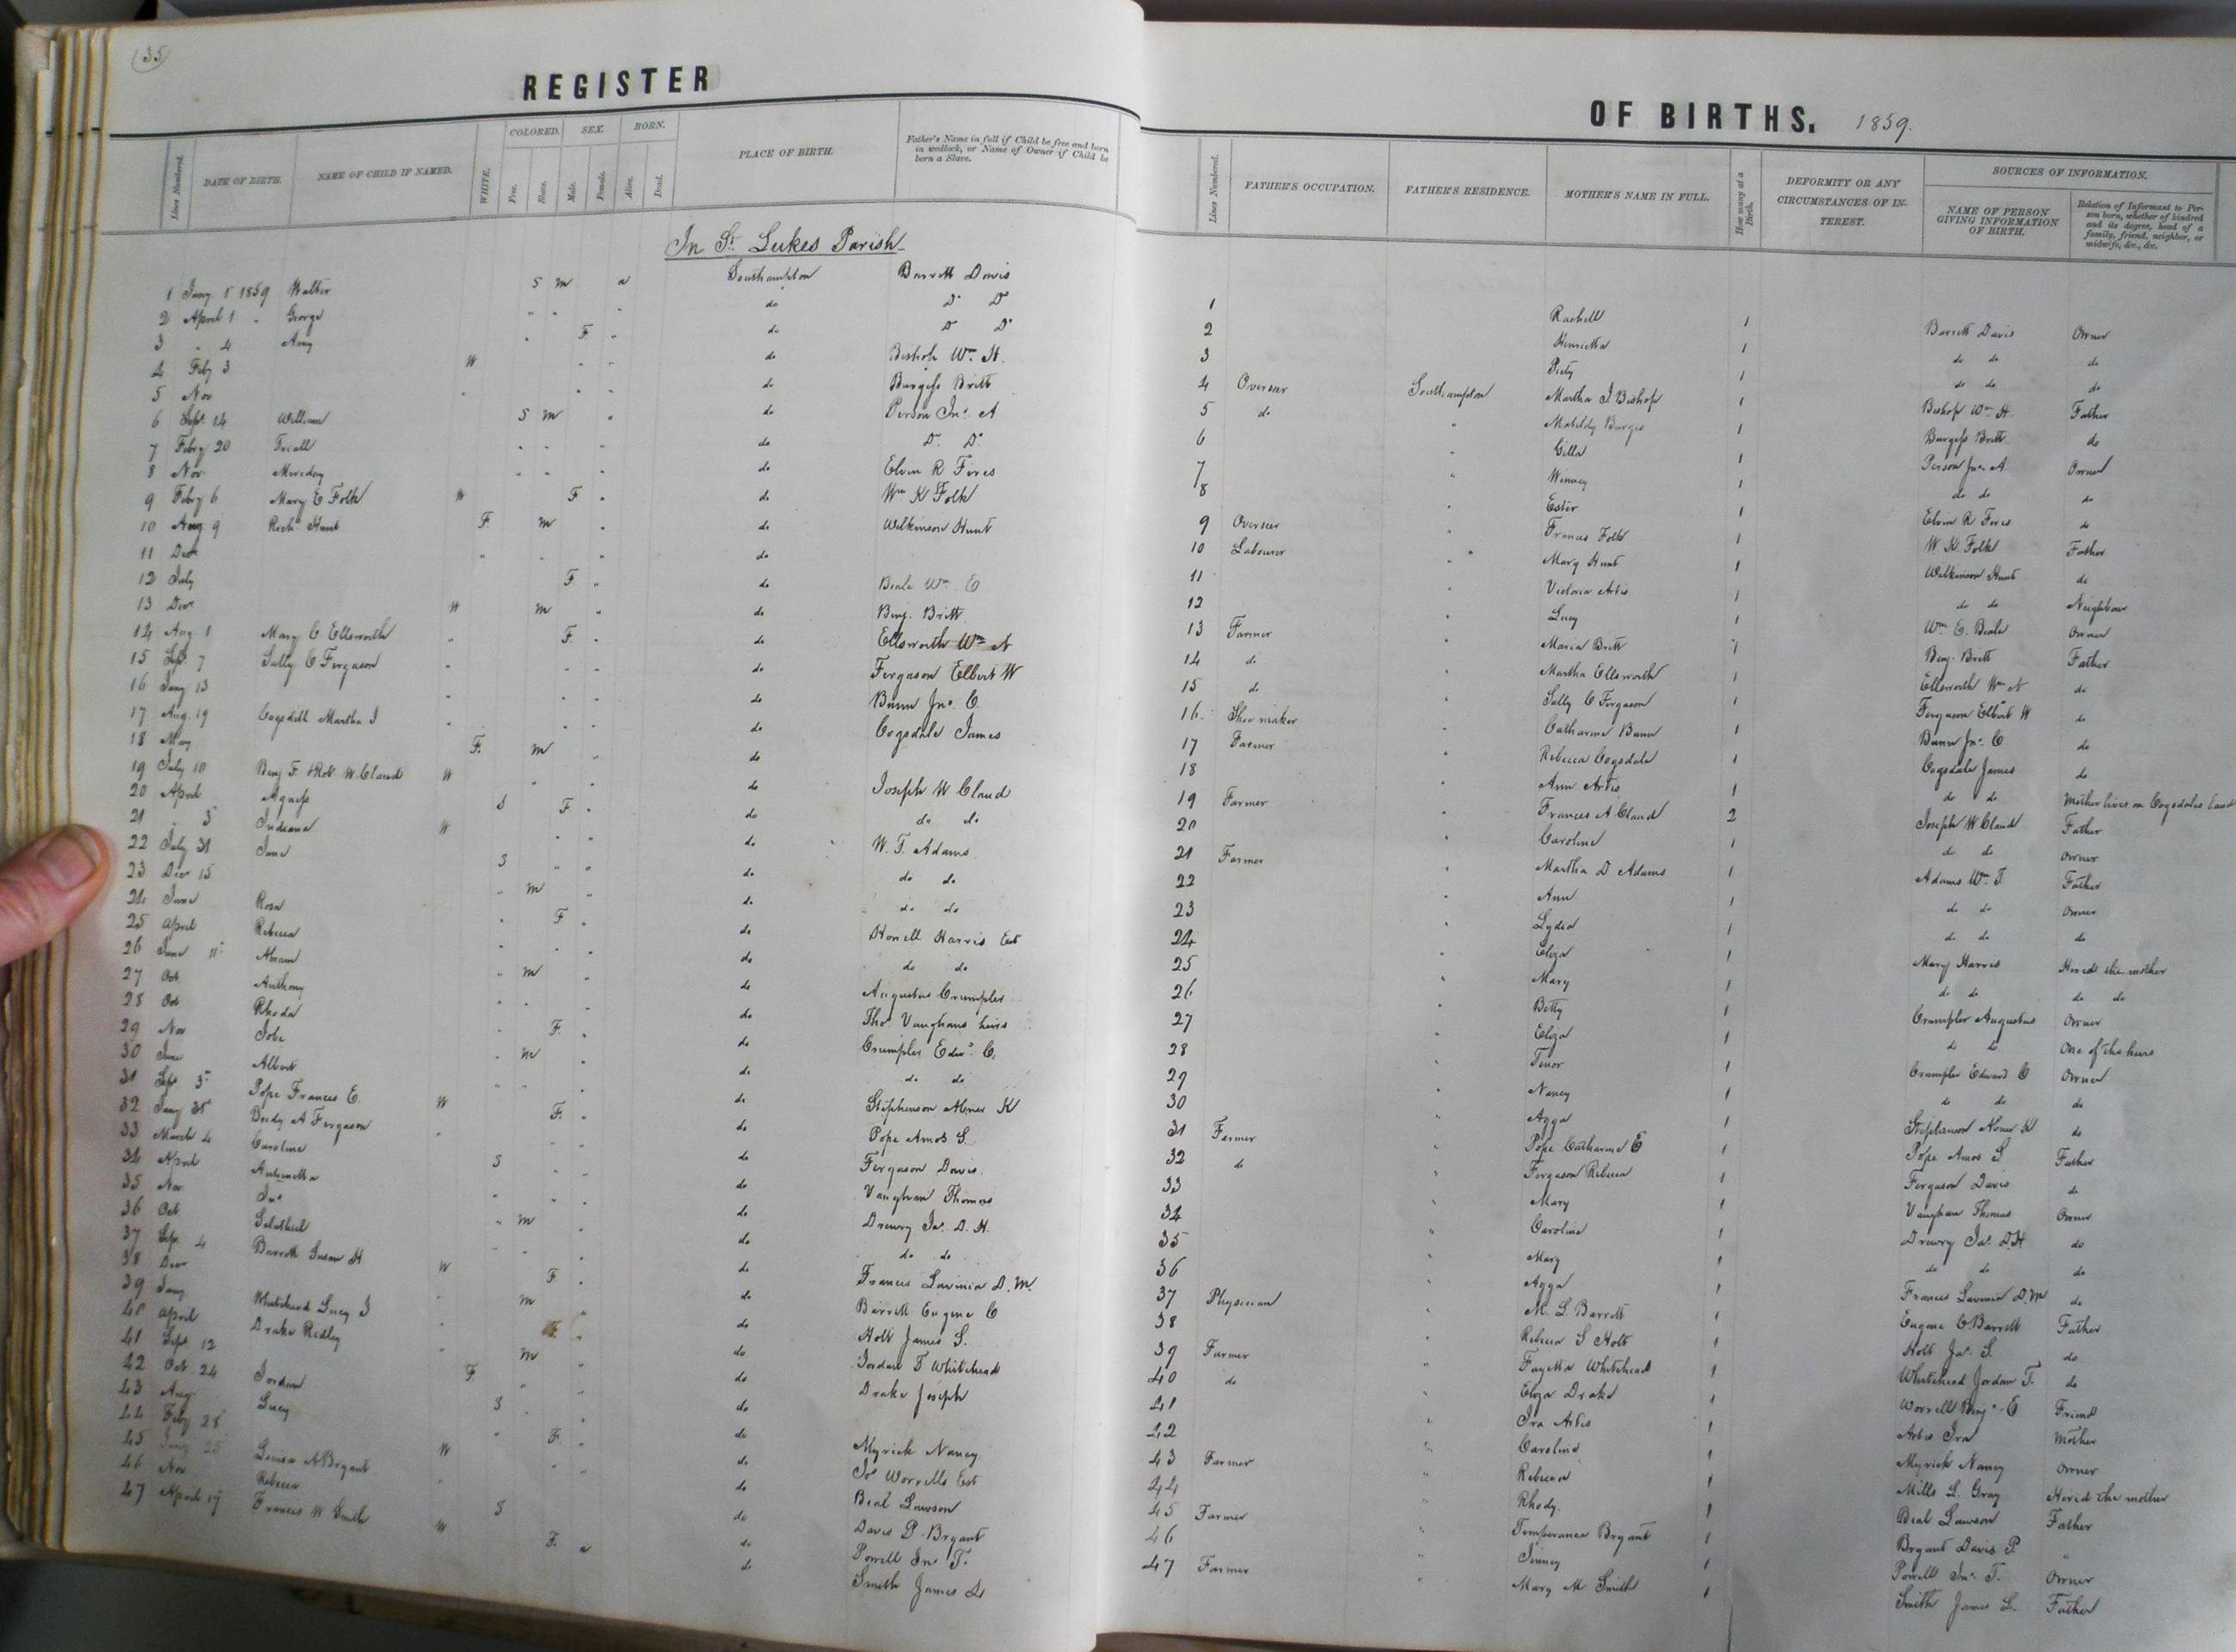 35
REGISTER
Lines Numbered. DATE OF BIRTH. NAME OF CHILD IF NAMED. WHITE. COLORED. Free. Slave. SEX. Male. Female. BORN. Alive. Dead. PLACE OF BIRTH. Father's Name in full if Child be free and born in wedlock, or Name of Owner if Child be born a Slave.
In St. Lukes Parish
1 Jany 1 1859 Walter S m a Southampton Barrett Davis
2 April 1 " George " " " do Do Do
3 " 4 Amy " F " do Do Do
4 Feby 3 W " " do Bishop Wm H.
5 Nov " " " do Burgess Britt
6 Sept 14 William S m " do Person Jno. A
7 Febry 20 " " " do Do Do
8 Nov " " " do Elvin R
9 Febry 6 Mary E Folk W F " do Wm K Folk
10 Aug 9 Richd Hunt F m " do Wilkinson Hunt
11 Decr " " " do
12 July F " do Beale Wm E
13 Decr W m " do Benj. Britt
14 Aug 1 Mary C Ellsworth " F " do Ellsworth Wm N
15 Sept 7 Sally C Ferguson " " " do Ferguson Elbert W
16 Jany 13 " " " do Bunn Jno. C.
17 Aug. 19 Martha J " " " do Cogsdale James
18 May F. m " do
19 July 10 Benj F. & Robt W. Claud W " " do Joseph W Claud
20 April Agness S F " do do do
21 " 3 Indiana W " " do W. T. Adams
22 July 31 Jane S " " do do do
23 Decr 15 " m " do do do
24 June Rosa " F " do Howell Harris Est
25 April Rebecca " " " do do do
26 June 11 Abram " m " do Augustus Crumpler
27 Oct Anthony " " " do Thos. Vaughans heirs
28 Oct Rhoda " F " do Crumpler Edwd. C.
29 Nov " m " do do do
30 June Albert " " " do Stephenson Abner K
31 Sept 3 Pope Frances E. W F. " do Pope Amos S.
32 Jany 31 A Ferguson " " " do Ferguson Davis
33 March 4 Caroline S " " do Vaughan Thomas
34 April " " " do Drewry Jas. D. H.
35 Nov Jno " m " do do do
36 Oct " " " do Francis Lavinia D. M.
37 Sep. 4 Barrett Susan H W F " do Barrett Eugene C
38 Decr " m " do Holt James S.
39 Jany Whitehead Lucy J " F " do Jordan T Whitehead
40 April Drake Ridley " m do Drake Joseph
41 Sept. 12 F " " do
42 Oct 24 Jordan S " " do Myrick Nancy
43 Aug Lucy " F. " do Jos Worrells Est
44 Feby 28 W " " do Beal Lawson
45 Jany 25 Louisa A Bryant " do Davis P. Bryant
46 Nov Rebecca S do Powell Jno. T.
47 April 17 Frances W Smith W F. a do Smith James L
OF BIRTHS. 1859.
Lines Numbered. FATHER'S OCCUPATION. FATHER'S RESIDENCE. MOTHER'S NAME IN FULL. How many at a Birth. DEFORMITY OR ANY CIRCUMSTANCES OF INTEREST. SOURCES OF INFORMATION. NAME OF PERSON GIVING INFORMATION OF BIRTH. Relation of Informant to Person born, whether of kindred and its degree, head of a family, friend, neighbor, or midwife, &c., &c.
1 Rachell 1 Barrett Davis Owner
2 Henrietta 1 do do do
3 Piety 1 do do do
4 Overseer Southampton Martha J Bishop 1 Bishop Wm H. Father
5 do " Matildy Burges 1 Burgess Britt do
6 " 1 Person Jno. A. Owner
7 " Winney 1 do do do
8 " Ester 1 Elvin R do
9 Overseer " Frances Folk 1 W K. Folk Father
10 Labourer " Mary Hunt 1 Wilkinson Hunt do
11 " Victoria Artis 1 do do Neighbour
12 " Lucy 1 Wm E. Beale Owner
13 Farmer " Maria Britt 1 Benj. Britt Father
14 do " Martha Ellsworth 1 Ellsworth Wm N do
15 do " Sally C Ferguson 1 Ferguson Elbert W do
16 Shoemaker " Catharine Bunn 1 Bunn Jno. C do
17 Farmer " Rebecca Cogsdale 1 Cogsdale James do
18 " Ann Artis 1 do do Mother lives on Cogsdales Land
19 Farmer " Frances A Claud 2 Joseph W Claud Father
20 " Caroline 1 do do Owner
21 Farmer " Martha D Adams 1 Adams Wm T. Father
22 " Ann 1 do do Owner
23 " Lydia 1 do do do
24 Eliza 1 Mary Harris Hired the mother
25 Mary 1 do do do do
26 " Betty 1 Crumpler Augustus Owner
27 " Eliza 1 do do One of the heirs
28 " Tenor 1 Crumpler Edward C Owner
29 " Nancy 1 do do do
30 " Agga 1 Stephenson Abner K do
31 Farmer " Pope Catharine E 1 Pope Amos S Father
32 do " Ferguson Rebecca 1 Ferguson Davis do
33 " Mary 1 Vaughan Thomas Owner
34 " Caroline 1 Drewry Jas. D. H do
35 " Mary 1 do do do
36 " Agga 1 Francis Lavinia D. M do
37 Physician " M. L Barrett 1 Eugene C Barrett Father
38 " Rebecca S Holt 1 Holt Jas. S. do
39 Farmer " Fayetta Whitehead 1 Whitehead Jordan T. do
40 do " Eliza Drake 1 Worrell Benj. E Friend
41 " Ira Artis 1 Artis Ira Mother
42 " Caroline 1 Myrick Nancy Owner
43 Farmer " Rebecca 1 Mills L. Gray Hired the mother
44 " Rhody. 1 Beal Lawson Father
45 Farmer " Temperance Bryant 1 Bryant Davis P. "
46 " Jinney 1 Powell Jno. T. Owner
47 Farmer " Mary M Smith 1 Smith James L. Father